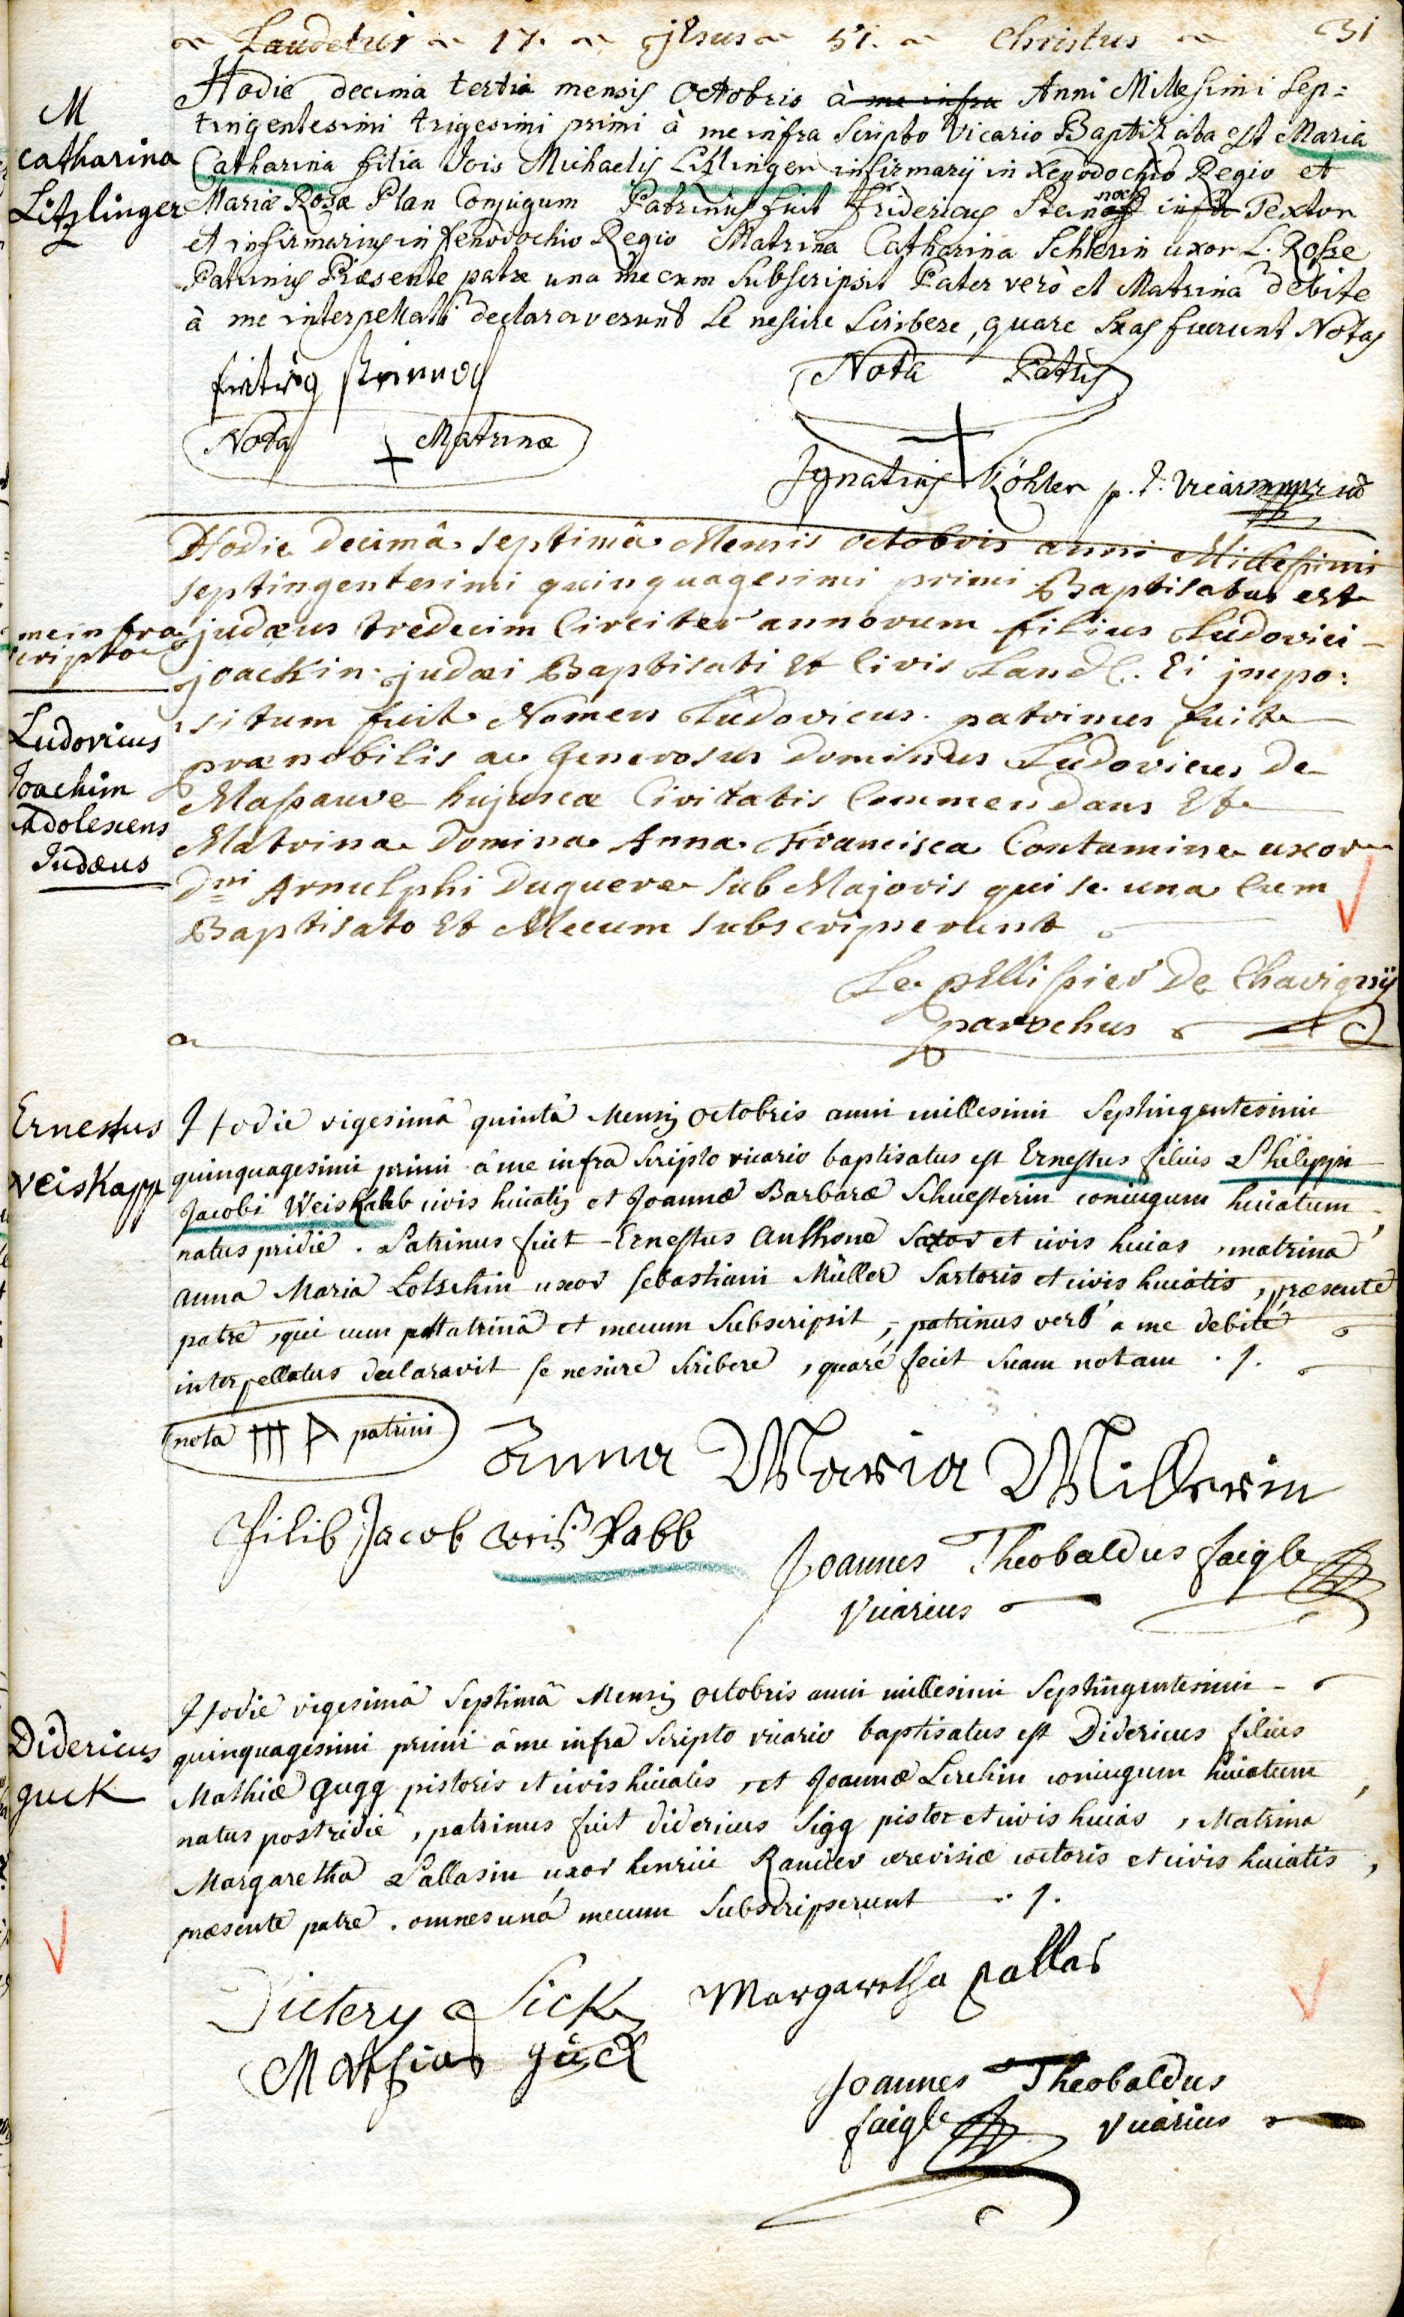 Laudetur 17. jEsus 51. Christus 31
M
Catharina
Litzlinger
Hodie decima tertia mensis Octobris à me infra Anni Millesimi Sep=
tingentesimi trigesimi primi à me infra Scripto Vicario Baptizata est Maria
Catharina filia Michaelis Litzlinger infirmarij in Xenodochio Regio et
Mariæ Rosæ Plan Conjugum Patrinus fuit Fridericus Stein noch Textor
et infirmarius in Xenodochio Regio Matrina Catharina Schlerin uxor L. Rosse
Patrinus Præsente patre una mecum Subscripsit Pater verò et Matrina debite
à me interpellati declaraverunt Se nescire Scribere, quare Suas fecerunt Notas
Nota Patris
Nota Matrinæ
Ignatius Köhler p. t. Vicarius
Hodie Decimâ septimâ Mensis octobris anni Millesimi
septingentesimi quinquagesimi primi Baptisatus est
me infra
scripto
judæus tredecim Circiter annorum filius Ludovici
joackin judæi Baptisati Et Civis Land. Ei jmpo:
situm fuit Nomen Ludovicus. patrinus fuit
prænobilis ac Generosus Dominus Ludovicus De
Massauve hujusce Civitatis Commendans Et
Matrina Domina Anna Francisca Contamine uxor
Dni Arnulphi Duquere Sub Majoris qui se una Cum
Baptisato Et Mecum subscripserunt
Ludovicus
Joachim
Adolescens
Judæus
Le pellissier De Chavignÿ
parochus
Ernestus
Veiskapp
Hodie vigesimâ quintâ Mensis octobris anni millesimi Septingentesimi
quinquagesimi primi â me infra Scripto vicario baptisatus est Ernestus filius Philippi
Jacobi Weiskabb civis huiatis et Joannæ Barbaræ Schuesterin coniugum huiatum,
natus pridie. Patrinus fuit Ernestus Anthone Sator et civis huias, matrina
Anna Maria Lotschin uxor Sebastiani Müller Sartoris et civis huiatis, præsente
patre, qui cum Matrinâ et mecum Subscripsit, patrinus verò a me debite
interpellatus declaravit se nescire Scribere, quare fecit Suam notam. /.
nota patrini
Anna Maria Millerin
Filib Jacob weis Kabb
Joannes Theobaldus faigle
Vicarius
Didericus
guck
Hodie vigesimâ Septimâ Mensis octobris anni millesimi Septingentesimi
quinquagesimi primi â me infra Scripto vicario baptisatus est Didericus filius
Mathiæ gugg pistoris et civis huiatis, et Joannæ Lerchin coniugum huiatum,
natus postridie, patrinus fuit didericus Sigg pistor et civis huias, Matrina
Margaretha Pallasin uxor henrici cerevisiæ coctoris et civis huiatis,
præsente patre. omnes unâ mecum Subscripserunt . /.
Dietery Sick Margaretha pallas
Mathias gück
Joannes Theobaldus
faigle Vicarius